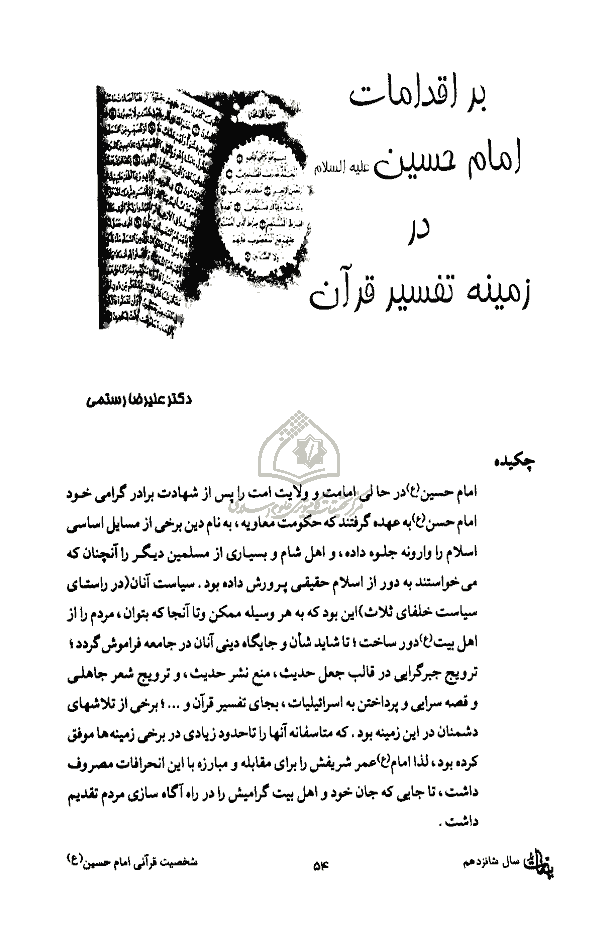 بر اقدامات
امام حسین علیه السلام
در
زمینه تفسیر قرآن
دکتر علیرضا رستمی
چکیده
امام حسین(ع)در حا لی امامت و ولایت امت را پس از شهادت برادر گرامی خود
امام حسن(ع)به عهده گرفتند که حکومت معاویه ، به نام دین برخی از مسایل اساسی
اسلام را وارونه جلوه داده ، و اهل شام و بسیاری از مسلمین دیگر را آنچنان که
می خواستند به دور از اسلام حقیقی پرورش داده بود . سیاست آنان(در راستای
سیاست خلفای ثلاث)این بود که به هر وسیله ممکن وتا آنجا که بتوان ، مردم را از
اهل بیت(ع)دور ساخت ؛ تا شاید شأن و جایگاه دینی آنان در جامعه فراموش گردد ؛
ترویج جبرگرایی در قالب جعل حدیث ، منع نشر حدیث ، و ترویج شعر جاهلی
و قصه سرایی و پرداختن به اسرائیلیات ، بجای تفسیر قرآن و ... ؛ برخی از تلاشهای
دشمنان در این زمینه بود . که متاسفانه آنها را تاحدود زیادی در برخی زمینه ها موفق
کرده بود ، لذا امام(ع)عمر شریفش را برای مقابله و مبارزه با این انحرافات مصروف
داشت ، تا جایی که جان خود و اهل بیت گرامیش را در راه آگاه سازی مردم تقدیم
داشت .
سال شانزدهم
۵۴
شخصیت قرآنی امام حسین(ع)